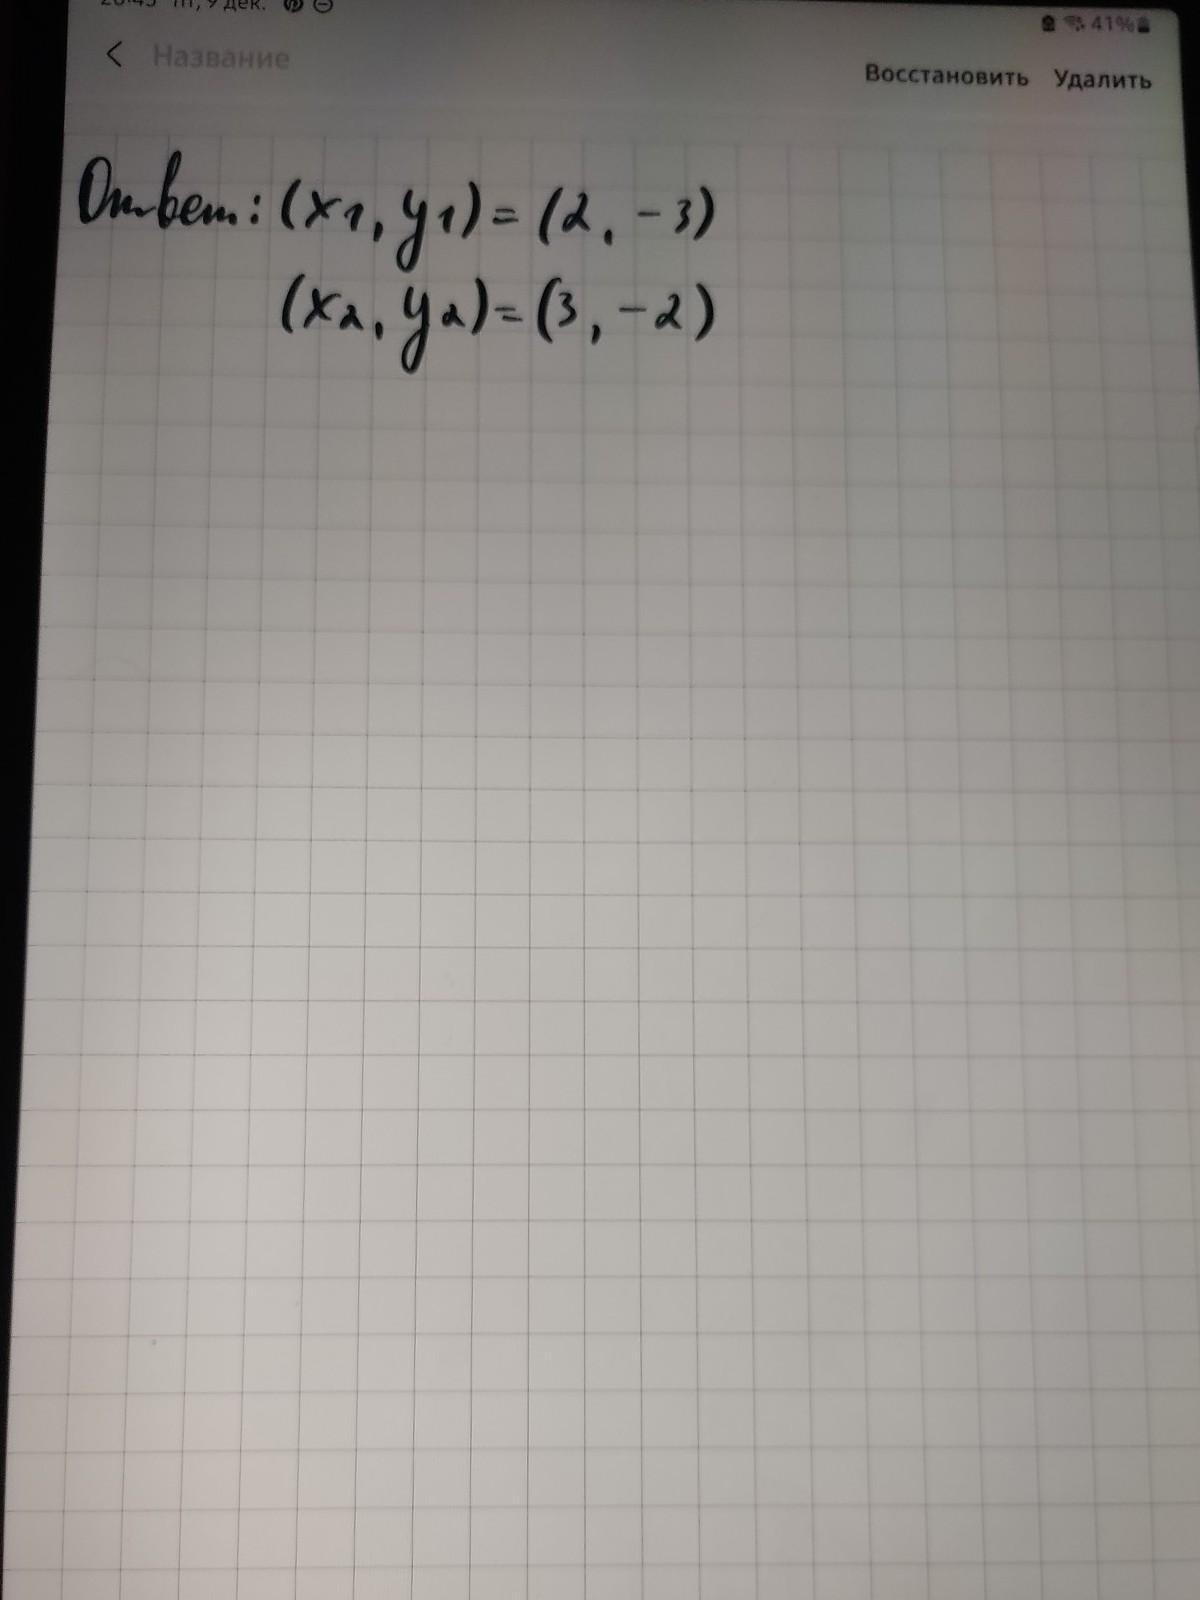 9 дек.
41%
Название
Восстановить Удалить
Ответ: (x1, y1) = (2, -3)
(x2, y2) = (3, -2)